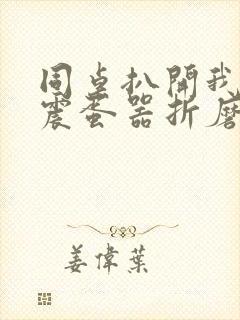 同桌扒開我
震蛋器折磨
姜偉葉